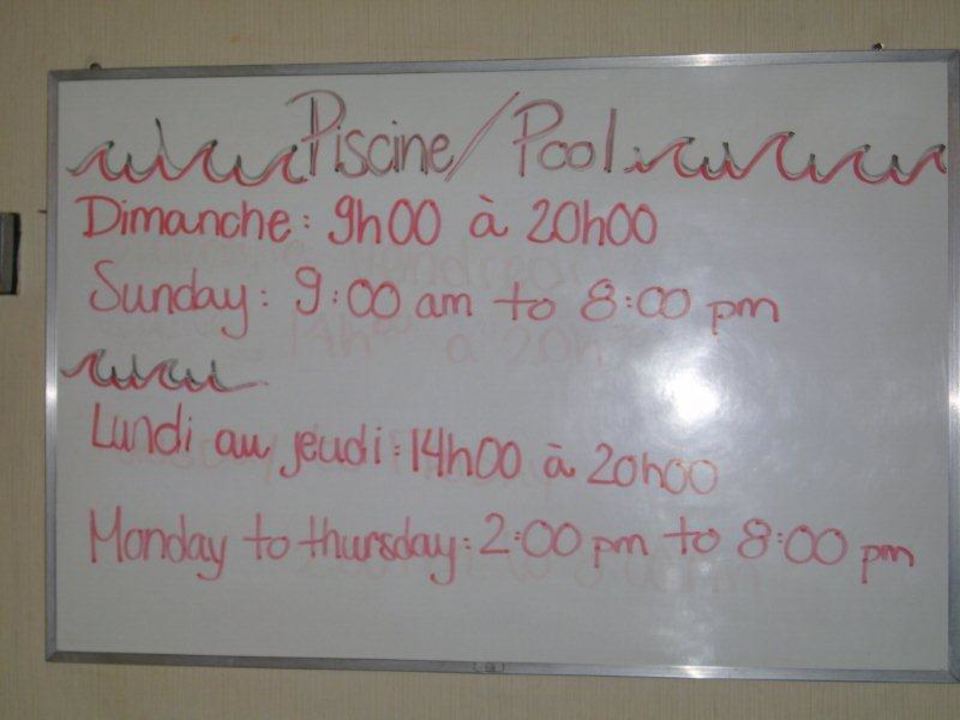 Piscine/Pool
Dimanche: 9h00 à 20h00
Sunday: 9:00 am to 8:00 pm
Lundi au jeudi: 14h00 à 20h00
Monday to thursday: 2:00 pm to 8:00 pm